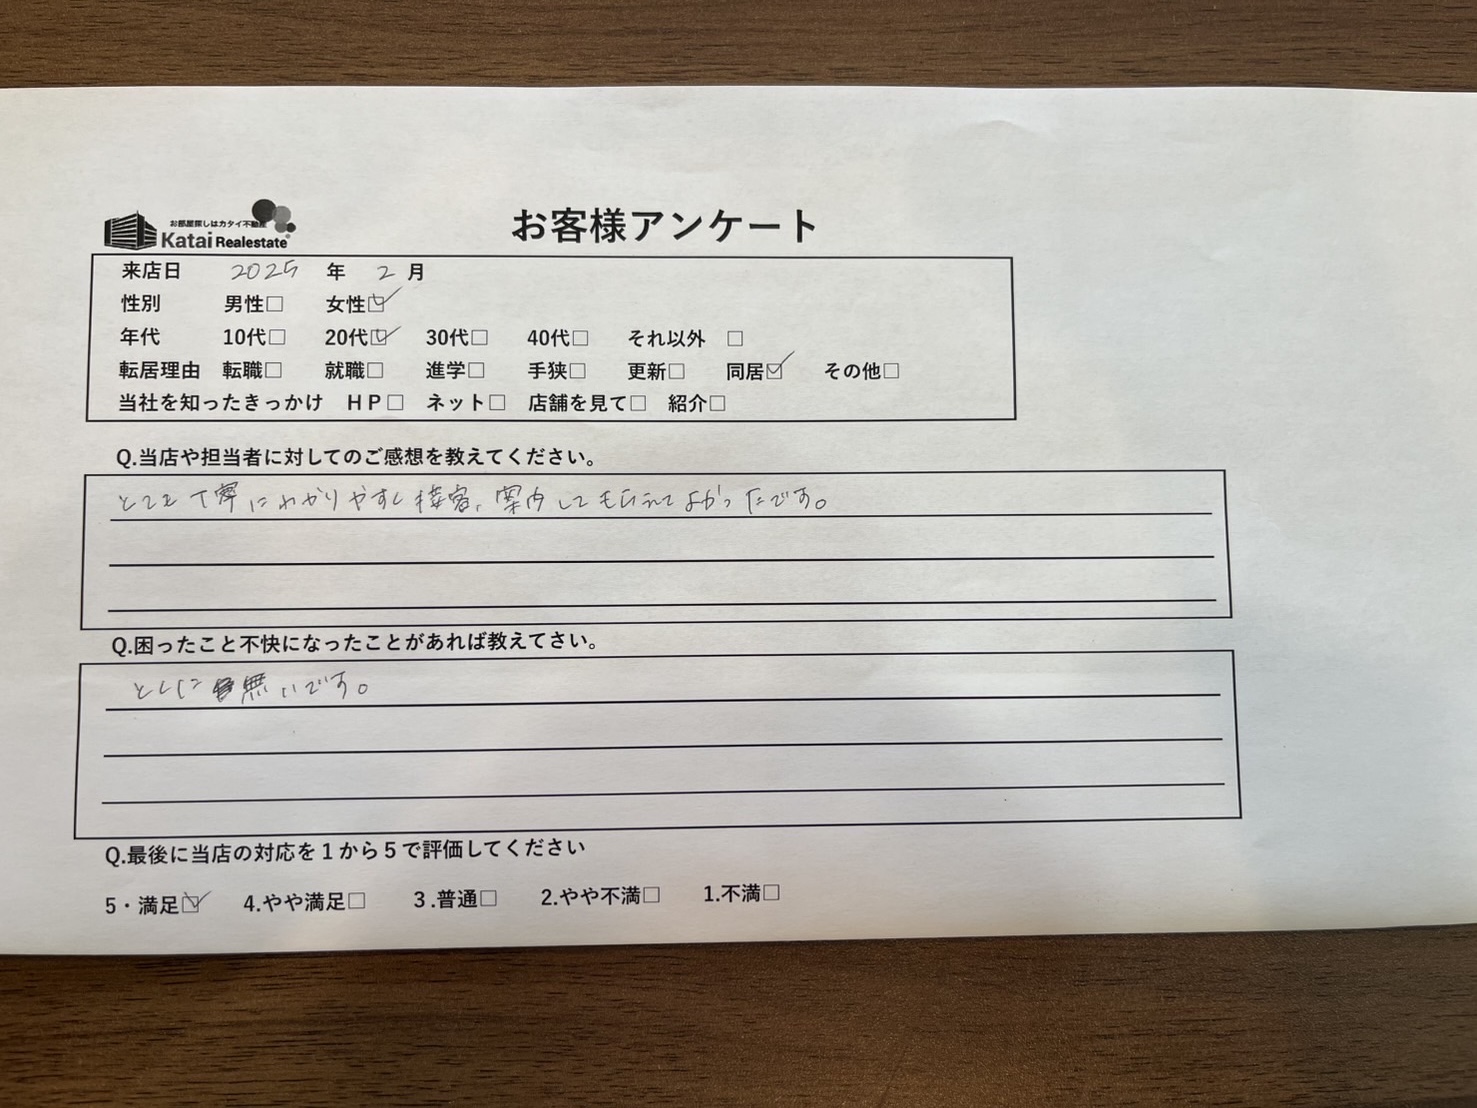 お部屋探しはカタイ不動産
Katai Realestate
お客様アンケート
来店日 2025 年 2 月
性別 男性□ 女性☑
年代 10代□ 20代☑ 30代□ 40代□ それ以外 □
転居理由 転職□ 就職□ 進学□ 手狭□ 更新□ 同居☑ その他□
当社を知ったきっかけ HP□ ネット□ 店舗を見て□ 紹介□
Q.当店や担当者に対してのご感想を教えてください。
とても丁寧にわかりやすく接客、案内してもらえてよかったです。
Q.困ったこと不快になったことがあれば教えてさい。
とくに無いです。
Q.最後に当店の対応を1から5で評価してください
5・満足☑ 4.やや満足□ 3.普通□ 2.やや不満□ 1.不満□